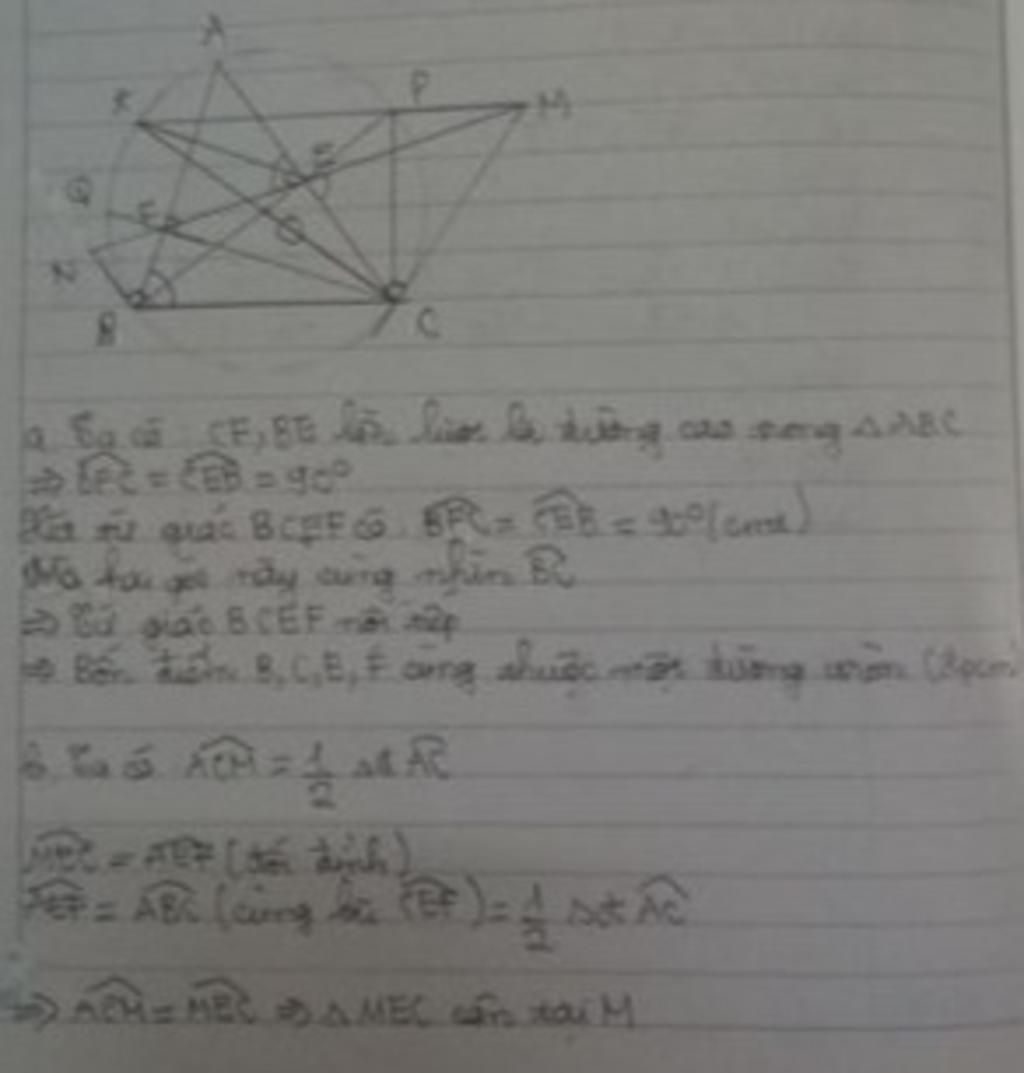 A
K
P
M
E
Q
F
O
N
B
C
a Ta có CF, BE lần lượt là đường cao trong △ABC
⇒ BFC = CEB = 90°
Xét tứ giác BCEF có BFC = CEB = 90° (cmt)
Mà hai góc này cùng nhìn BC
⇒ Tứ giác BCEF nội tiếp
⇒ Bốn điểm B, C, E, F cùng thuộc một đường tròn (đpcm
b Ta có ACM = 1/2 sđ AC
MEC = AEF (đối đỉnh)
AEF = ABC (cùng bù CEF) = 1/2 sđt AC
⇒ ACM = MEC ⇒ △MEC cân tại M